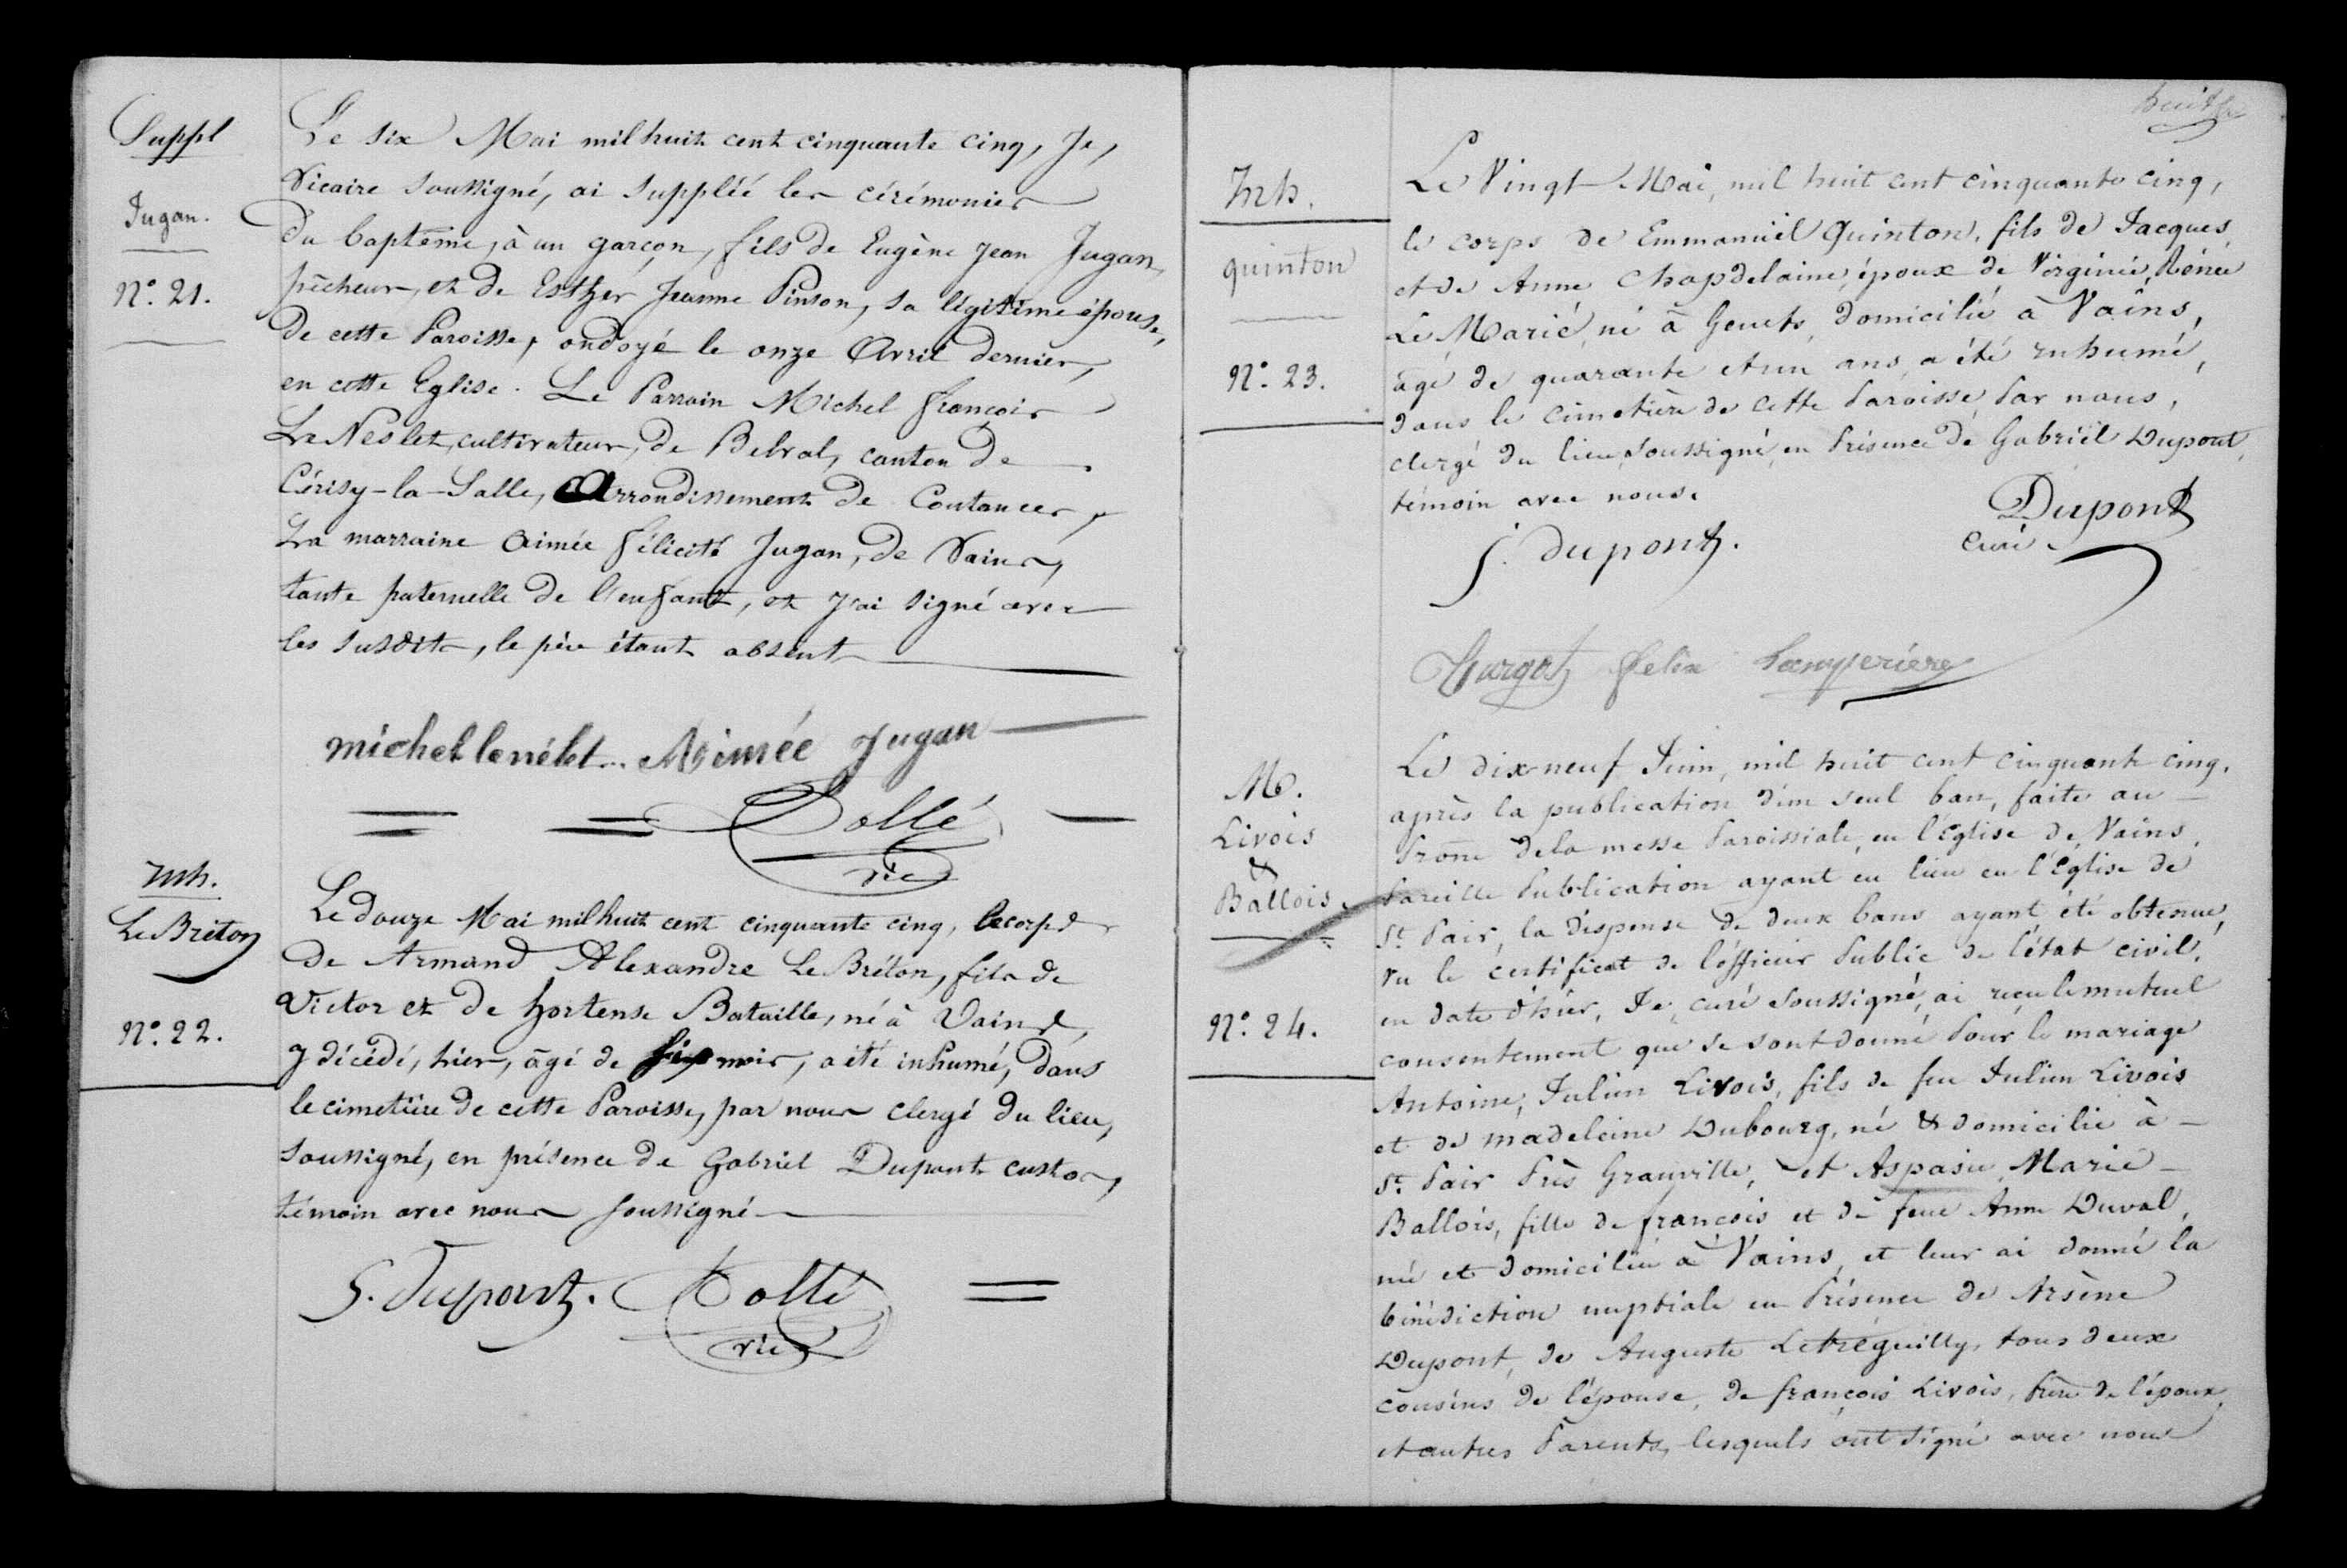 Suppl
Jugan.
N°. 21.
Le six Mai mil huit cent cinquante cinq, Je,
Vicaire soussigné, ai suppléé les cérémonies
du baptême, à un garçon, fils de Eugène Jean Jugan,
pêcheur, et de Esther Jeanne Pinson, sa légitime épouse,
de cette Paroisse, ondoyé le onze Avril dernier,
en cette Eglise. Le Parrain Michel François
Le Neslet, cultivateur, de Belval, canton de
Cérisy-la-Salle, Arrondissement de Coutances,
La marraine Aimée Félicité Jugan, de Vains,
tante paternelle de l'enfant, et j'ai signé avec
les susdits, le père étant absent
michel lenélet Aimée Jugan
Dollé
vic
Inh.
Le Bréton
N°. 22.
Le douze Mai mil huit cent cinquante cinq, le corps
de Armand Alexandre Le Bréton, fils de
Victor et de hortense Bataille, né à Vains,
y décédé, hier, âgé de six mois, a été inhumé, dans
le cimetière de cette Paroisse, par nous clergé du lieu,
soussigné, en présence de Gabriel Dupont custos,
témoin avec nous soussigné
G. Dupont. Dollé
vic
huit
Inh.
quinton
N°. 23.
Le Vingt Mai, mil huit cent cinquante cinq,
le corps de Emmanuël Quinton, fils de Jacques
et de Anne Chapdelaine, époux de Virginie, Rénée
Le Marié, né à Genets, domicilié à Vains,
âgé de quarante et un ans, a été inhumé,
dans le cimetière de cette Paroisse, Par nous,
clergé du lieu, soussigné, en Présence de Gabriël Dupont,
témoin avec nous.
Dupont
G. dupont.
curé
Turgot felix Lamperière
M.
Livois
&
Ballois
N°. 24.
Le dix-neuf Juin, mil huit cent cinquante cinq,
après la publication d'un seul ban, faite au
Prône de la messe Paroissiale, en l'Eglise de Vains,
Pareille Publication ayant eu lieu en l'Eglise de
St. Pair, la dispense de deux bans ayant été obtenue,
vu le certificat de l'officier Public de l'état civil,
en date d'hier, Je, curé soussigné, ai reçu le mutuel
consentement que se sont donné Pour le mariage
Antoine, Julien Livois, fils de feu Julien Livois
et de madeleine Dubourg, né & domicilié à
St. Pair Près Granville, et Aspasie, Marie
Ballois, fille de françois et de feue Anne Duval,
née et domiciliée à Vains, et leur ai donné la
bénédiction nuptiale en Présence de Arsène
Dupont, de Auguste Letréguilly, tous deux
cousins de l'épouse, de françois Livois, frère de l'époux,
et autres Parents, lesquels ont signé avec nous